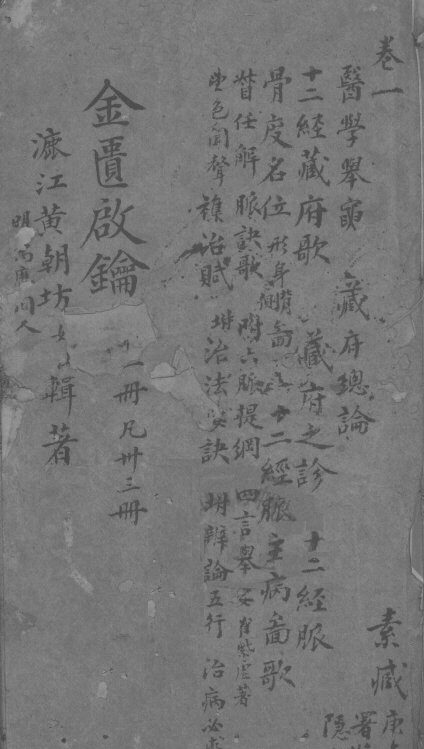 卷一
醫學舉 藏府總論
十二經藏府歌 藏府之診 十二經脈
骨度名位 形身側背圖 十二經脈主病圖歌
督任解 脈訣歌 附六脈提綱 四言舉 崔紫虛著
望色聞聲 雜治賦 附治法 訣 附辨論五行 治病必求
金匱啟鑰
一冊凡卅三冊
漉江黃朝坊 輯著
明 萬 間人
素臧
庚
署
隱